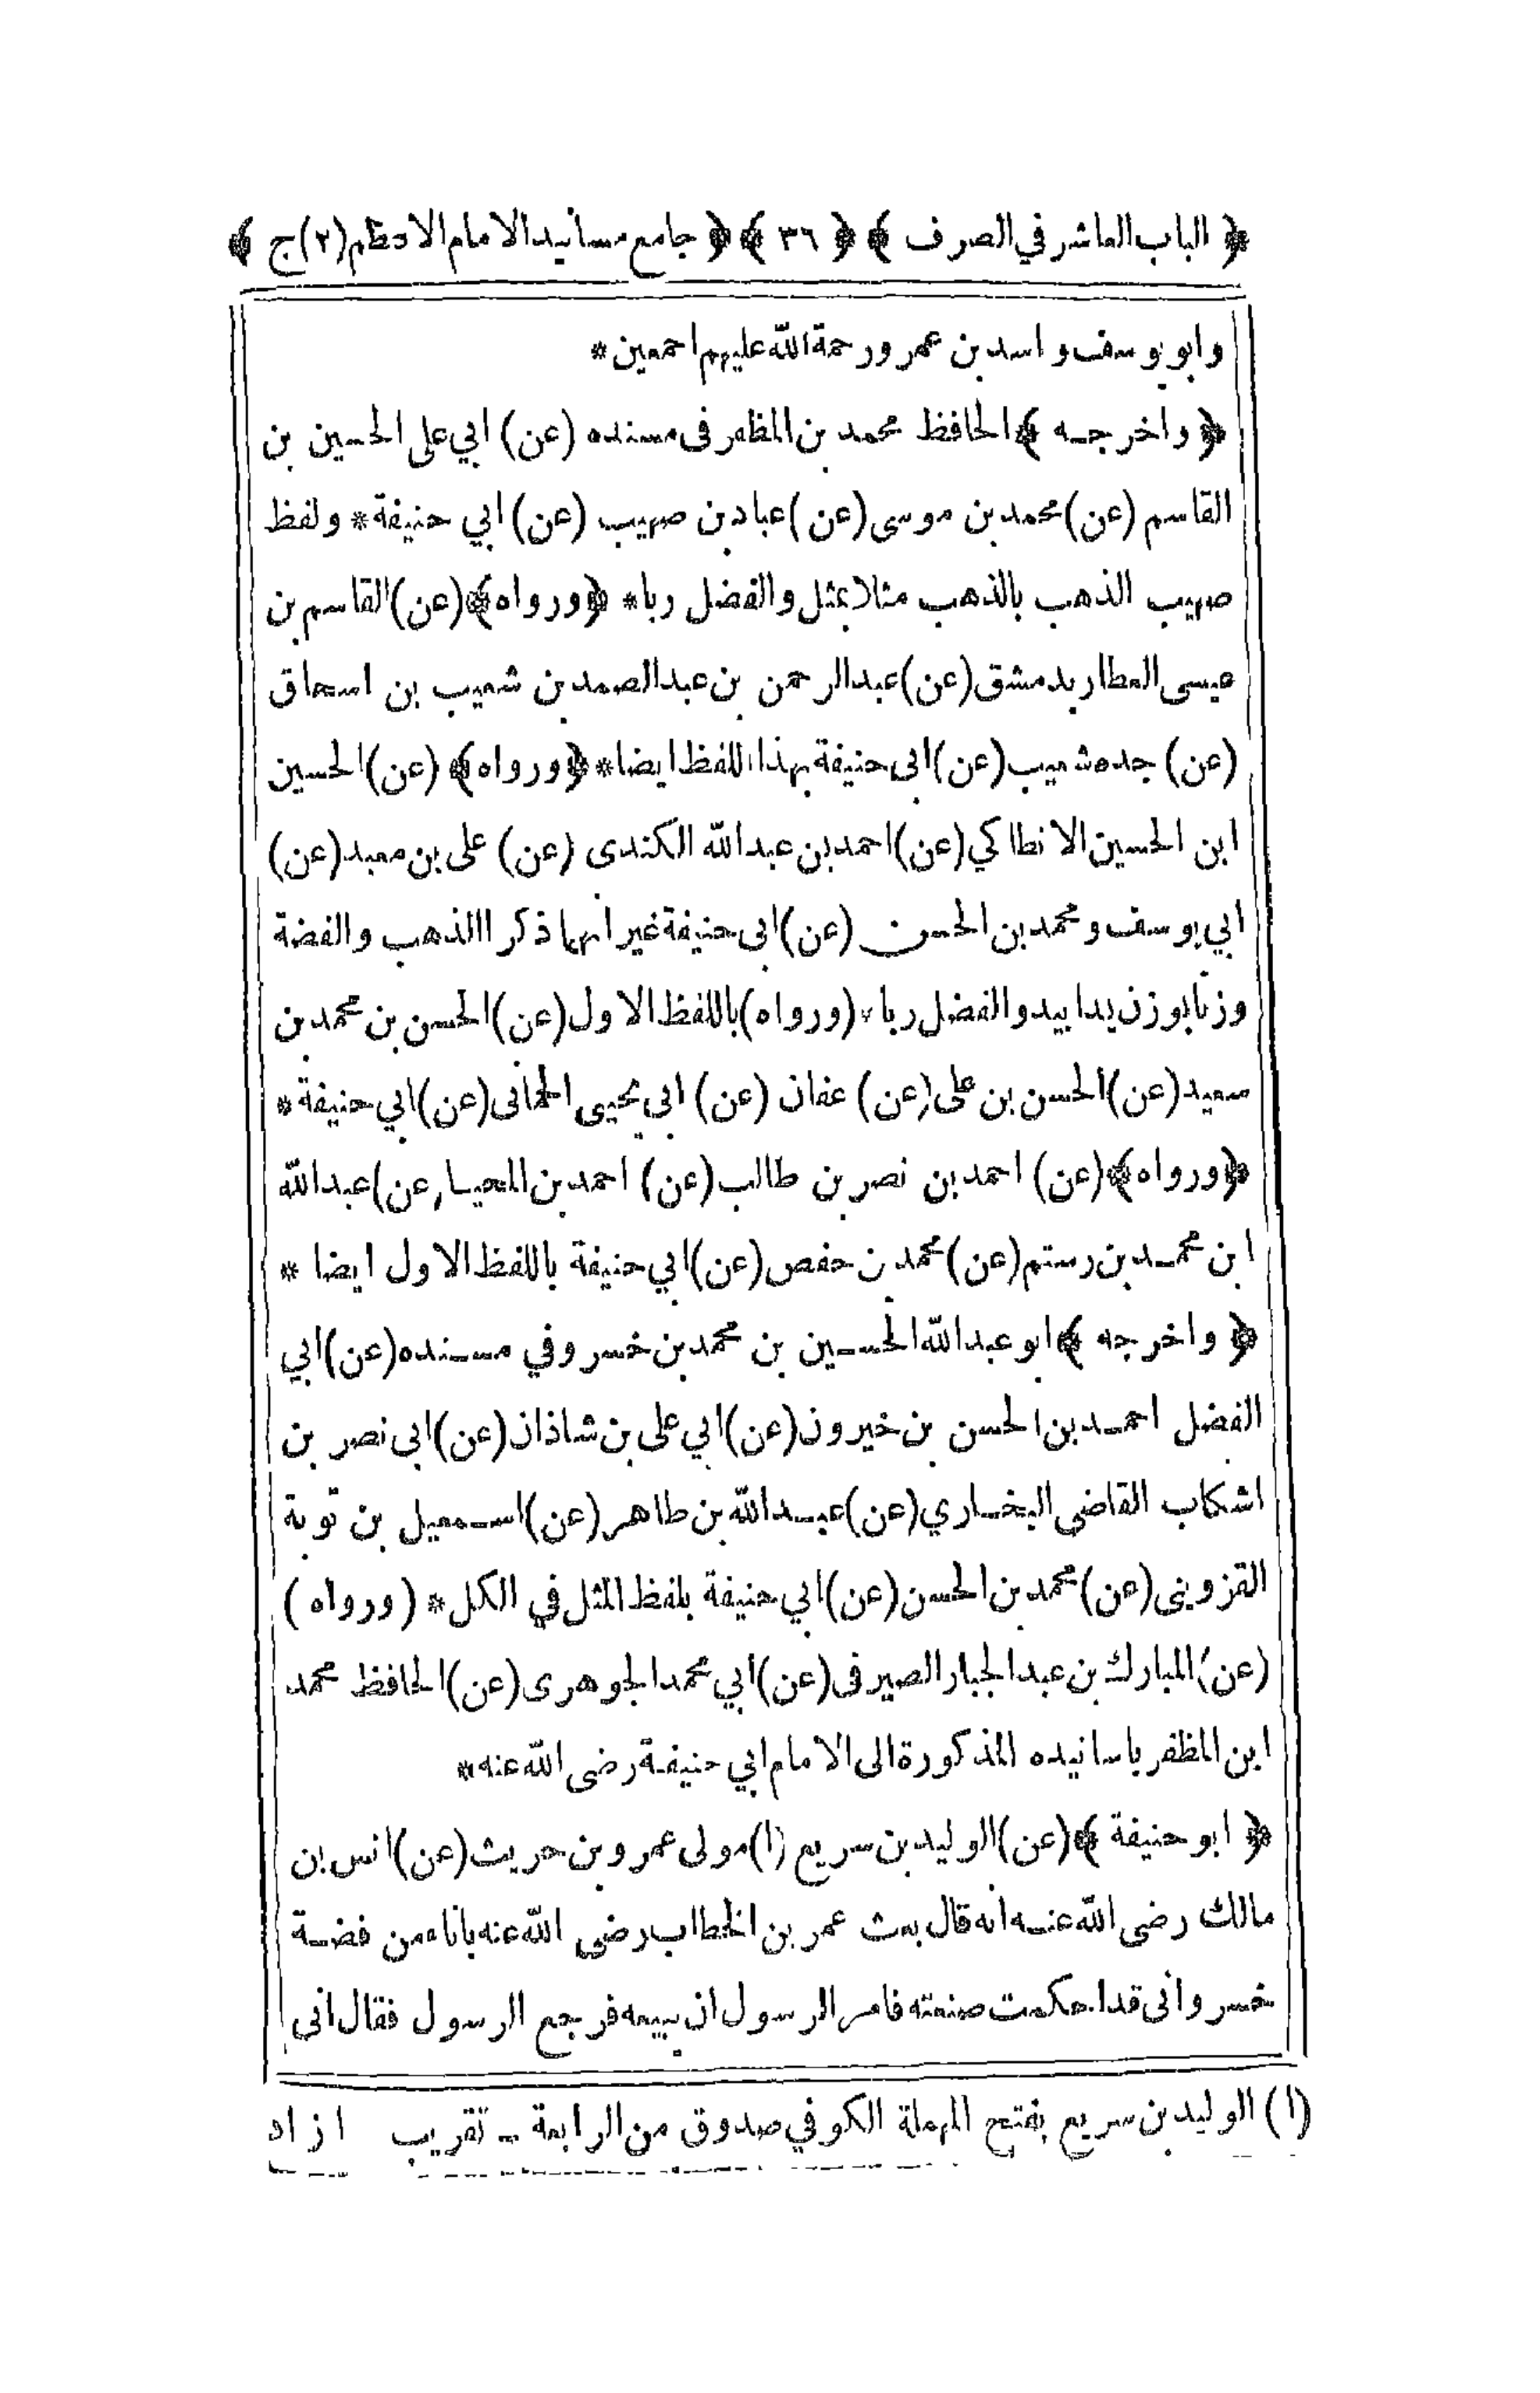 ﴿ الباب العاشر في الصرف ﴾ ﴿ ٣٦ ﴾ ﴿ جامع مسانيد الامام الاعظم (٢) ج ﴾
وابو يوسف واسد بن عمرو رحمة الله عليهم اجمعين *
﴿ واخرجه ﴾ الحافظ محمد بن المظفر فى مسنده (عن) ابي على الحسين بن
القاسم (عن) محمد بن موسى (عن) عباد بن صهيب (عن) ابي حنيفة * ولفظ
صهيب الذهب بالذهب مثلا بمثل والفضل ربا * ﴿ ورواه ﴾ (عن) القاسم بن
عيسى العطار بدمشق (عن) عبد الرحمن بن عبد الصمد بن شعيب بن اسحاق
(عن) جده شعيب (عن) ابى حنيفة بهذا اللفظ ايضا * ﴿ ورواه ﴾ (عن) الحسين
ابن الحسين الانطاكي (عن) احمد بن عبد الله الكندى (عن) على بن معبد (عن)
ابي يوسف ومحمد بن الحسن (عن) ابى حنيفة غير انهما ذكرا الذهب والفضة
وزنا بوزن يدا بيد والفضل ربا * (ورواه) باللفظ الاول (عن) الحسن بن محمد بن
سعيد (عن) الحسن بن على (عن) عفان (عن) ابي يحيى الحمانى (عن) ابي حنيفة *
﴿ ورواه ﴾ (عن) احمد بن نصر بن طالب (عن) احمد بن (عن) عبد الله
ابن محمد بن رستم (عن) محمد بن حفص (عن) ابي حنيفة باللفظ الاول ايضا *
﴿ واخرجه ﴾ ابو عبد الله الحسين بن محمد بن خسرو في مسنده (عن) ابي
الفضل احمد بن الحسن بن خيرون (عن) ابي على بن شاذان (عن) ابى نصر بن
اشكاب القاضى البخاري (عن) عبد الله بن طاهر (عن) اسمعيل بن توبة
القزوينى (عن) محمد بن الحسن (عن) ابي حنيفة بلفظ المثل في الكل * (ورواه)
(عن) المبارك بن عبد الجبار الصيرفى (عن) ابي محمد الجوهرى (عن) الحافظ محمد
ابن المظفر باسانيده المذكورة الى الامام ابي حنيفة رضى الله عنه *
﴿ ابو حنيفة ﴾ (عن) الوليد بن سريع (١) مولى عمرو بن حريث (عن) انس بن
مالك رضى الله عنه انه قال بعث عمر بن الخطاب رضى الله عنه باناء من فضة
خسروانى قد احكمت صنعته فامر الرسول ان يبيعه فرجع الرسول فقال انى
(١) الوليد بن سريع بفتح المهملة الكوفي صدوق من الرابعة - تقريب ازاد